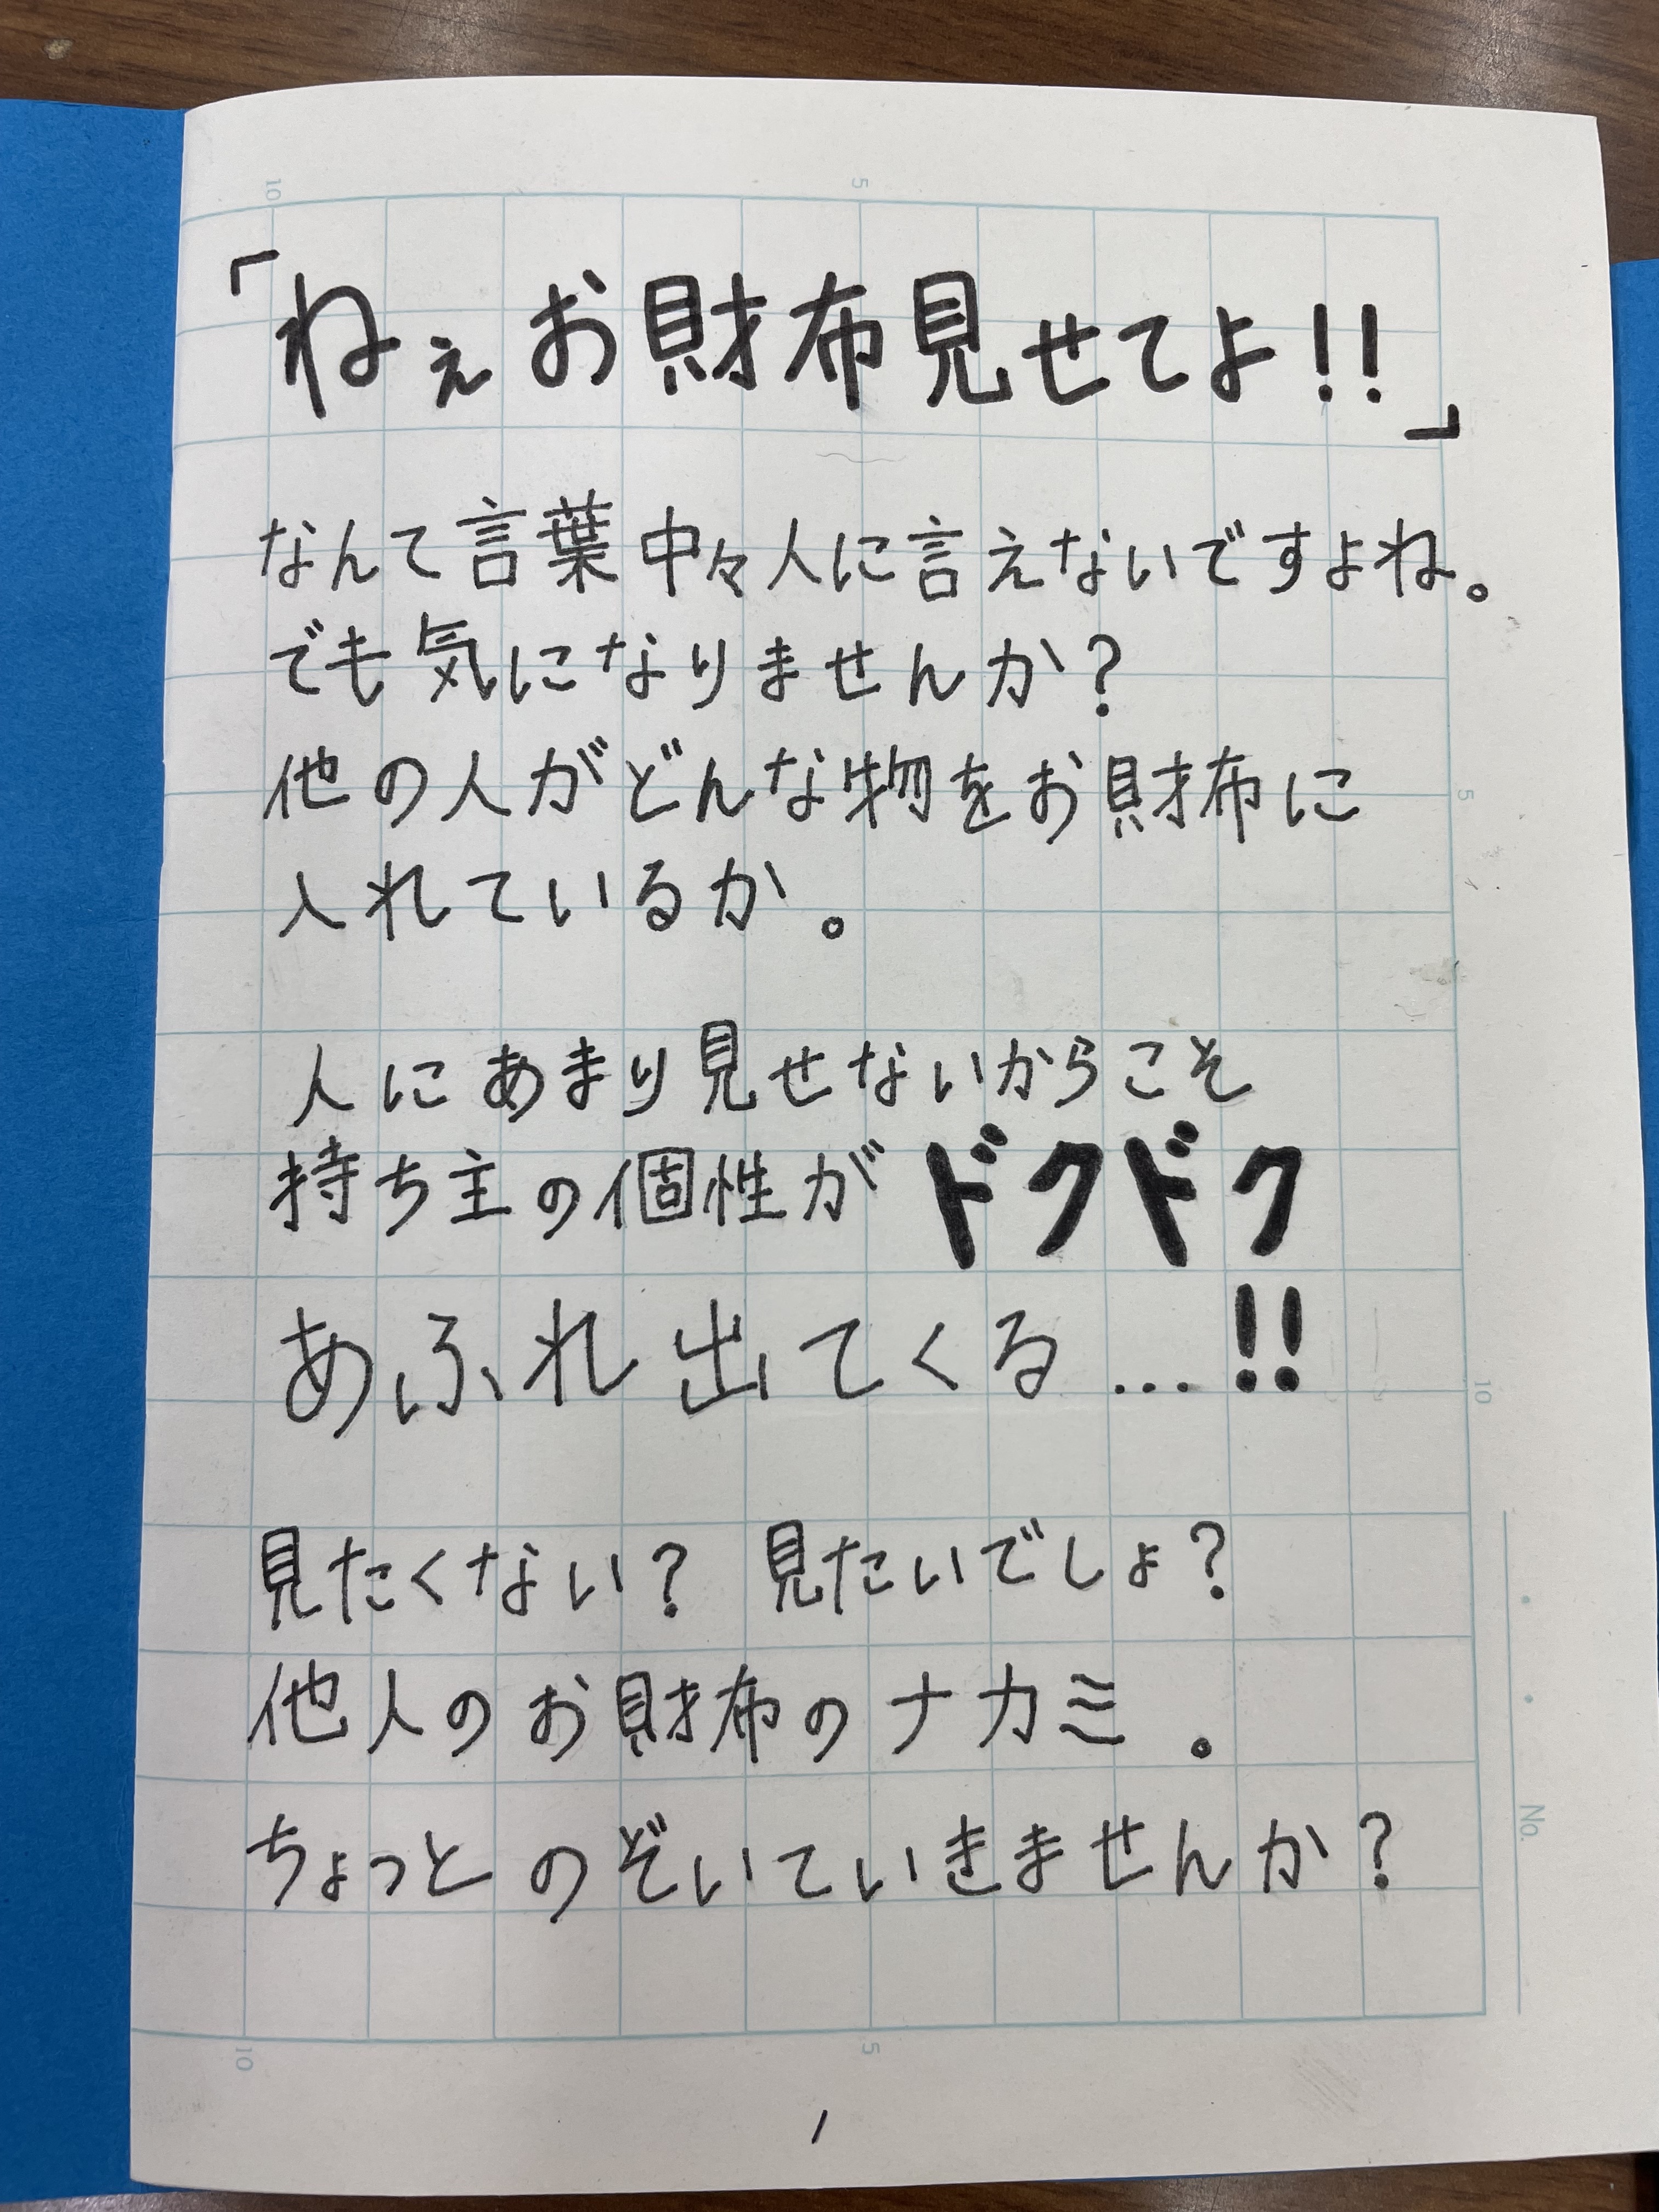 「ねぇお財布見せてよ!!」
なんて言葉中々人に言えないですよね。
でも気になりませんか?
他の人がどんな物をお財布に
入れているか。
人にあまり見せないからこそ
持ち主の個性がドクドク
あふれ出てくる...!!
見たくない? 見たいでしょ?
他人のお財布のナカミ。
ちょっとのぞいていきませんか?
1
10
5
5
10
No.
10
5